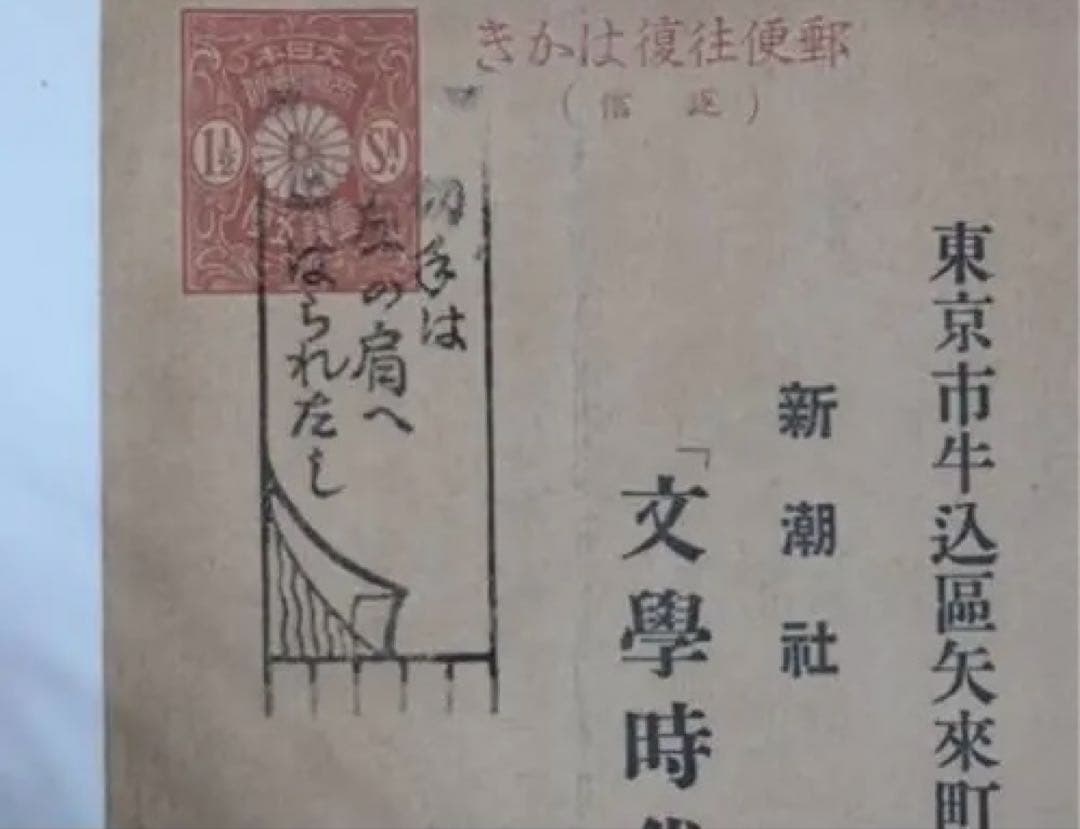 郵便往復はかき
(返信)
大日本
1½
SN
東京市牛込區矢來町
新潮社
「文學時
切手は
左の肩へ
はられたし